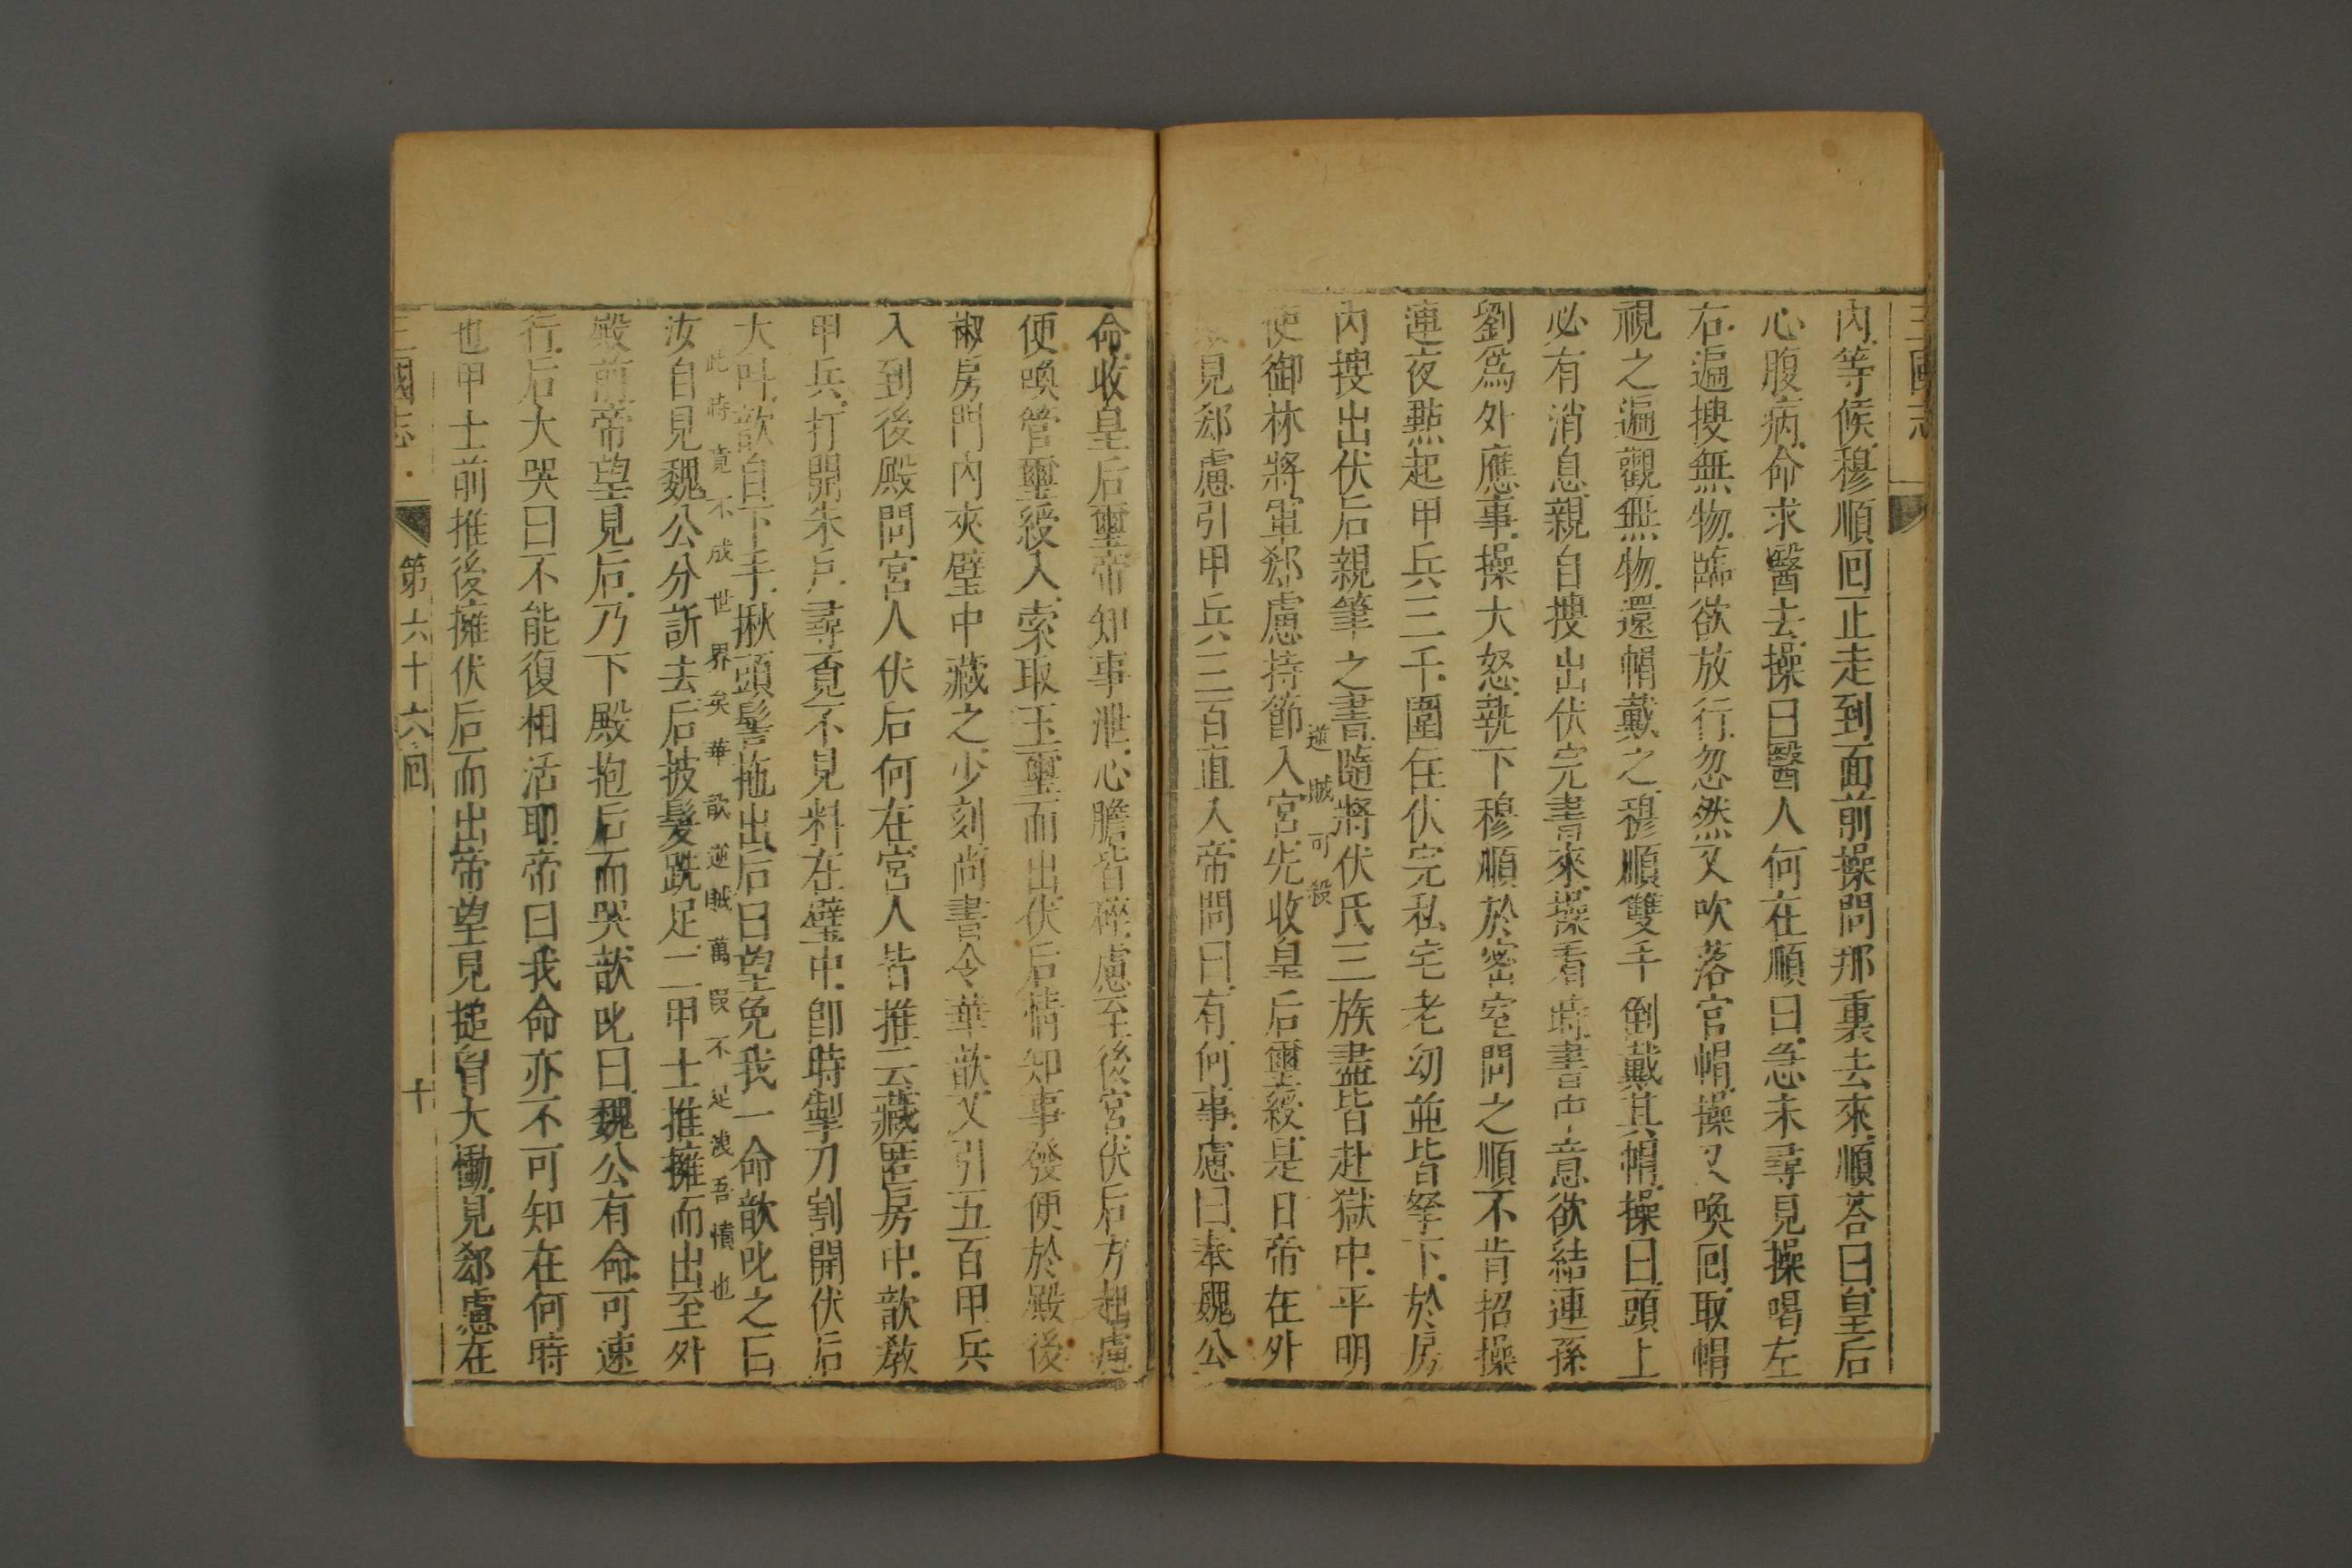 三國志
內等候穆順回正走到面前操問那裏去來順荅曰皇后
心腹病命求醫去操曰醫人何在順曰急未尋見操喝左
右遍搜無物臨欲放行忽然又吹落官帽操又喚回取帽
視之遍觀無物還帽戴之穆順雙手倒戴其帽操曰頭上
必有消息親自搜出伏完書來操看時書中意欲結連孫
劉爲外應事操大怒執下穆順於密室問之順不肯招操
連夜㸃起甲兵三千圍住伏完私宅老幼並皆拏下於房
內搜出伏后親筆之書隨將伏氏三族盡皆赴獄中平明
逆賊可殺
使御林將軍郄慮持節入宮先收皇后璽綬是日帝在外
見郄慮引甲兵三百直入帝問曰有何事慮曰奉魏公
命收皇后璽帝知事泄心膽皆碎慮至後宮伏后方起慮
便喚管璽綬人索取玉璽而出伏后情知事發便於殿後
椒房門內夾壁中藏之少刻尚書令華歆又引五百甲兵
入到後殿問宮人伏后何在宮人皆推云藏匿房中歆教
甲兵打開朱戶尋覓不見料在壁中卽時掣刀割開伏后
大叫歆自下手揪頭髻拖出后曰望免我一命歆叱之曰
此時竟不成世界矣華歆逆賊萬叚不足洩吾憤也
汝自見魏公分訴去后披髮跣足二甲士推擁而出至外
殿前帝望見后乃下殿抱后而哭歆叱曰魏公有命可速
行后大哭曰不能復相活耶帝曰我命亦不可知在何時
也甲士前推後擁伏后而出帝望見搥胷大慟見郄慮在
三國志
第六十六回
十